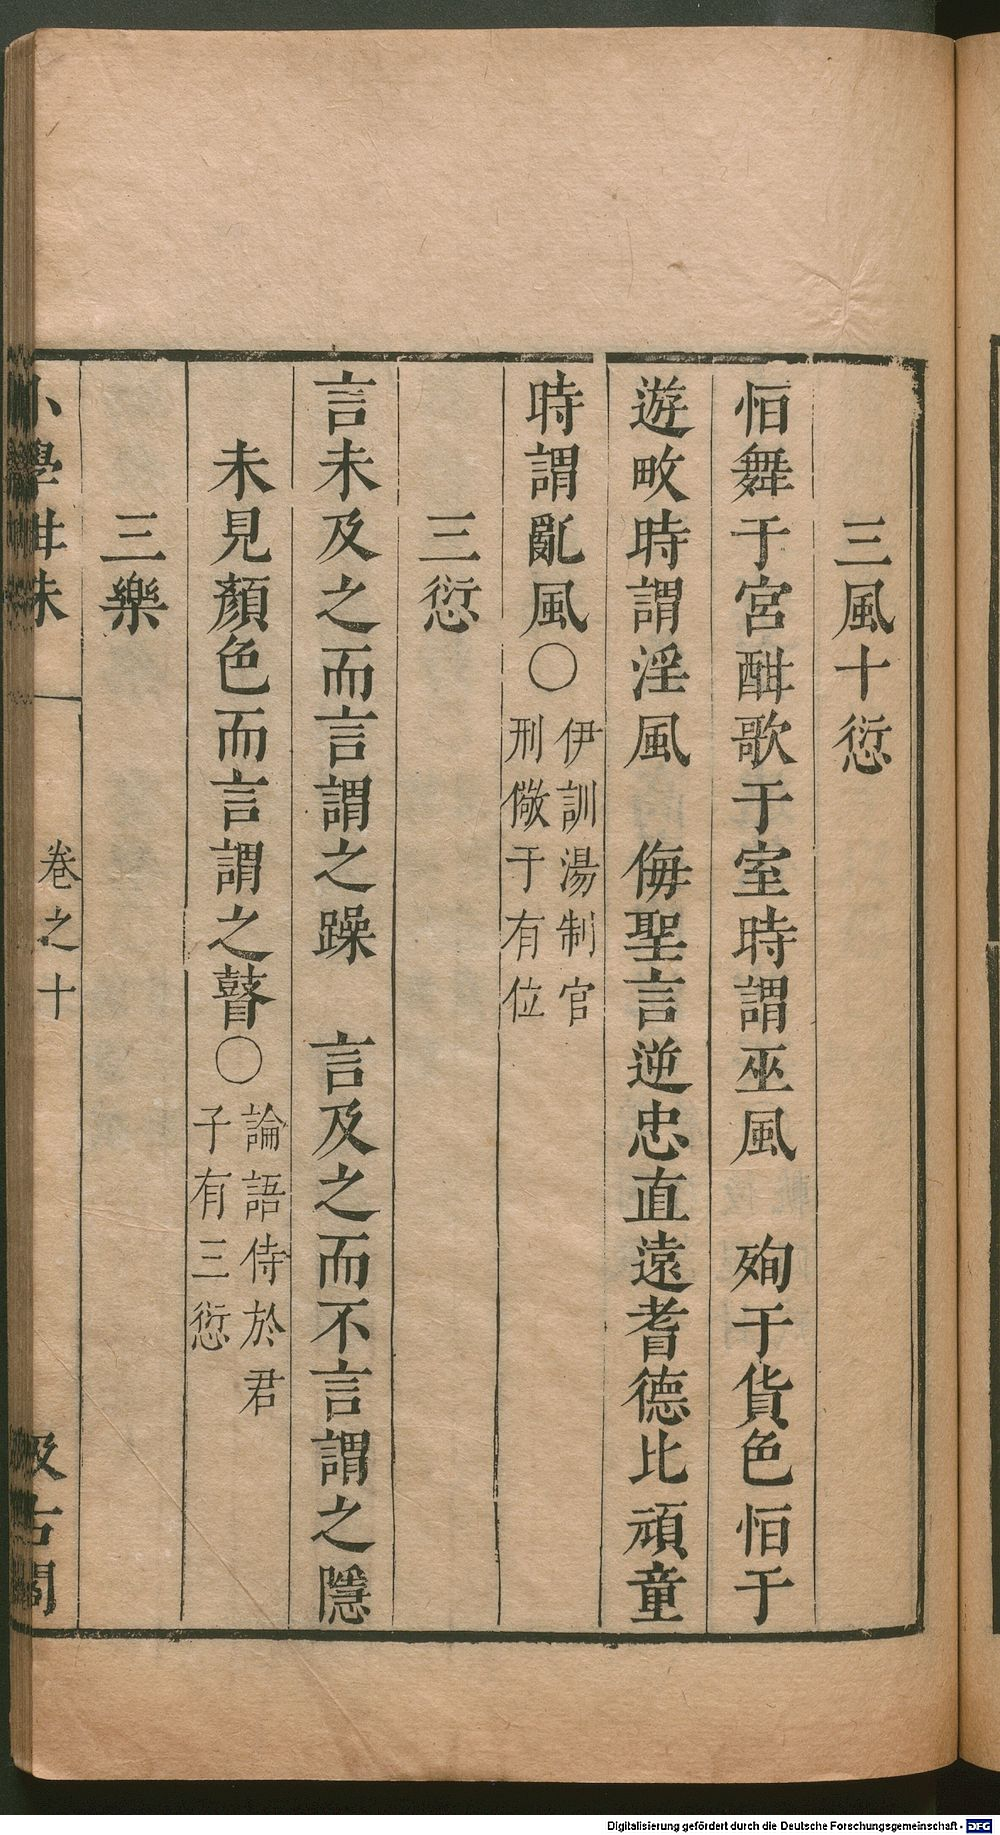 三風十愆
恒舞于宮酣歌于室時謂巫風　殉于貨色恒于
遊畋時謂淫風　侮聖言逆忠直遠耆德比頑童
時謂亂風〇伊訓湯制官
刑儆于有位
三愆
言未及之而言謂之躁　言及之而不言謂之隱
未見顏色而言謂之瞽〇論語侍於君
子有三愆
三樂
小學紺珠　卷之十　汲古閣
Digitalisierung gefördert durch die Deutsche Forschungsgemeinschaft - DFG